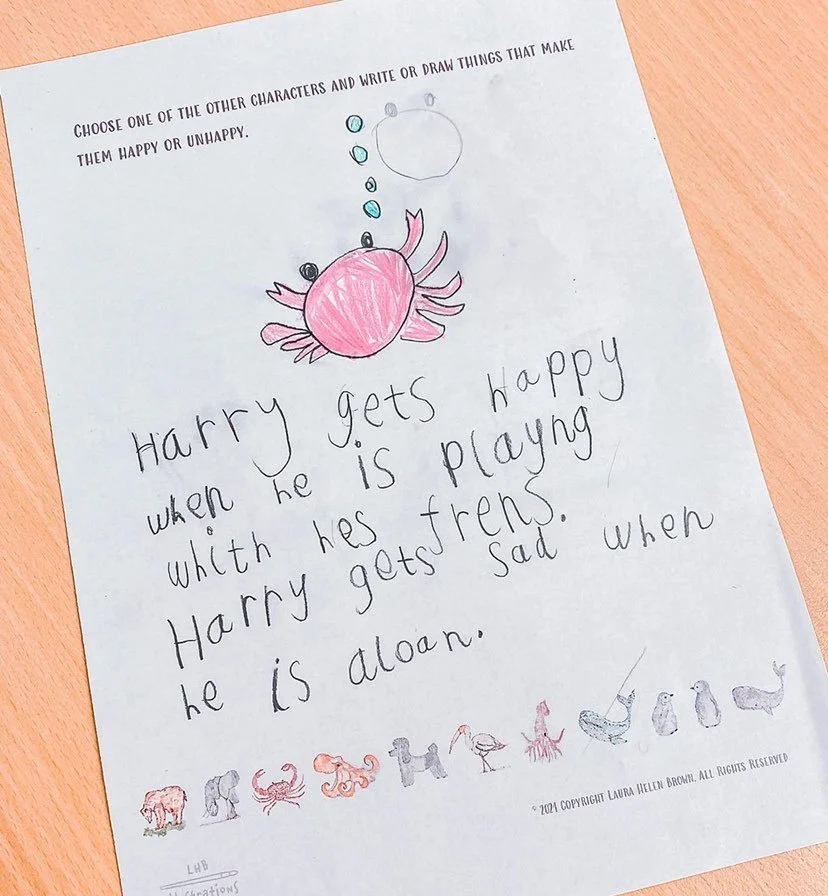 CHOOSE ONE OF THE OTHER CHARACTERS AND WRITE OR DRAW THINGS THAT MAKE
THEM HAPPY OR UNHAPPY.
Harry gets happy
when he is playng
whith hes frens.
Harry gets sad when
he is aloan.
© 2021 COPYRIGHT LAURA HELEN BROWN. ALL RIGHTS RESERVED
LHB